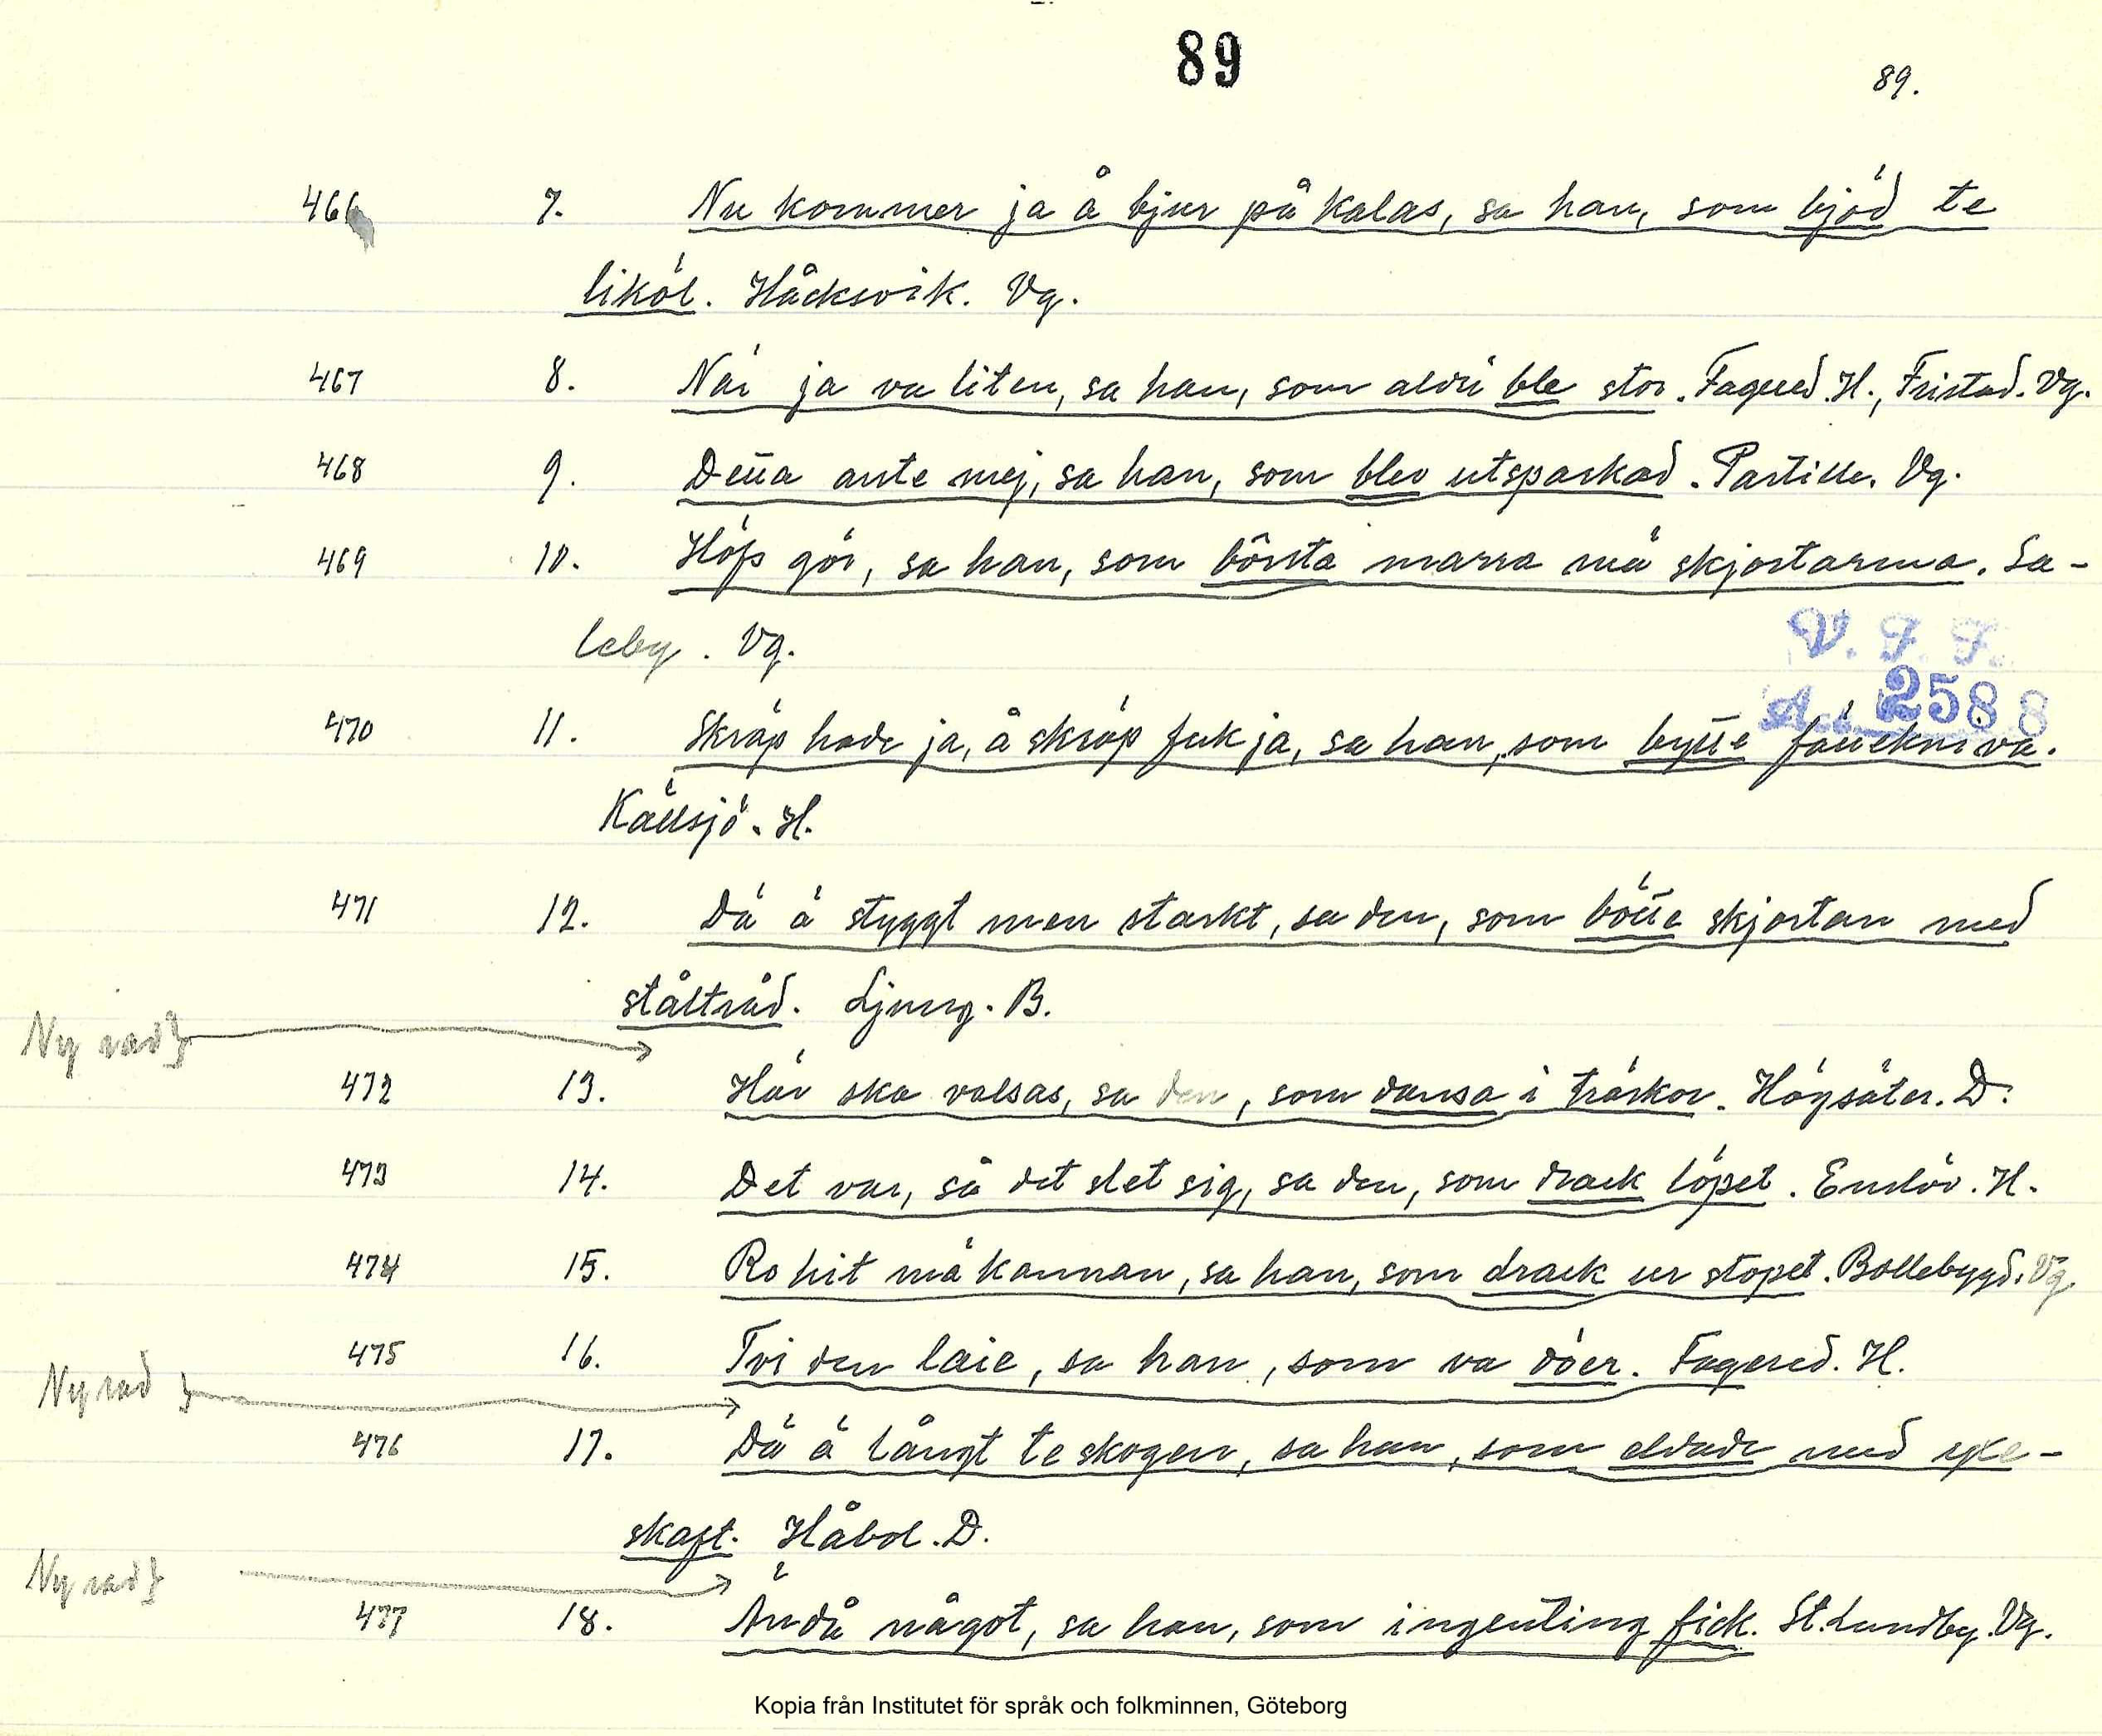 89
89.
466 7. Nu kommer ja å bjur på kalas, sa han, som bjöd te
liköl. Håcksvik. Vg.
467 8. När ja va liten, sa han, som aldri ble stor. Fagered. H., Fristad. Vg.
468 9. Denna ante mej, sa han, som blev utsparkad. Partille. Vg.
469 10. Höfs gör, sa han, som börsta marra mä skjortarma. Sa-
leby. Vg.
V. F. F.
470 11. Skräp hade ja, å skräp fek ja, sa han, som bytte fällekniva.
A. 2588
Källsjö. H.
471 12. Dä ä styggt men starkt, sa den, som bötte skjortan med
ståltråd. Ljung. B.
Ny rad
472 13. Här ska valsas, sa den, som dansa i träskor. Högsäter. D.
473 14. Det var, så det slet sig, sa den, som drack löpet. Enslöv. H.
474 15. Ro hit mä kannan, sa han, som drack ur stopet. Bollebygd. Vg.
475 16. Tvi den laie, sa han, som va döer. Fagered. H.
Ny rad
476 17. Dä ä långt te skogen, sa han, som eldade med yxe-
skaft. Håbol. D.
Ny rad
477 18. Ändå något, sa han, som ingenting fick. St. Lundby. Vg.
Kopia från Institutet för språk och folkminnen, Göteborg